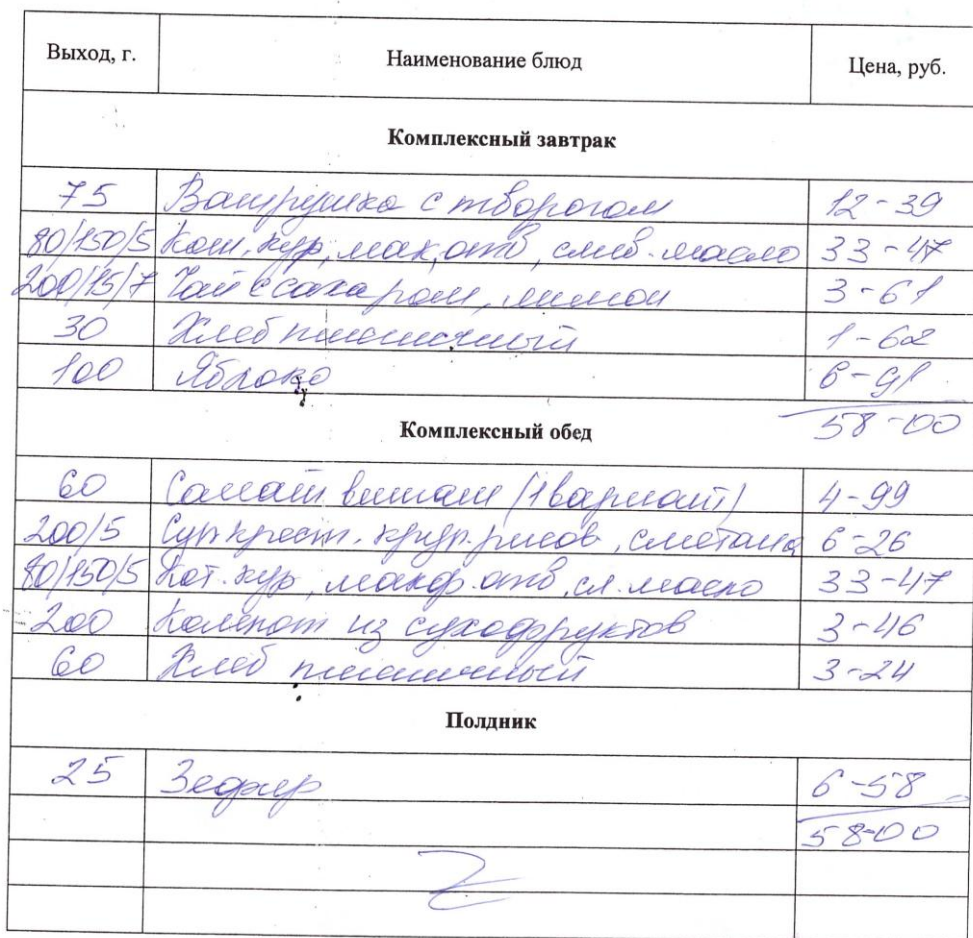 Выход, г. Наименование блюд Цена, руб.
Комплексный завтрак
75 Ватрушка с творогом 12-39
80/150/5 Кот. кур, мак, отв, слив. масло 33-47
200/15/7 Чай с сахаром, лимон 3-61
30 Хлеб пшеничный 1-62
100 Яблоко 6-91
58-00
Комплексный обед
60 Салат витам (1 вариант) 4-99
200/5 Суп крест. круп. рисов, сметана 6-26
80/150/5 Кот. кур, макар. отв, сл. масло 33-47
200 Компот из сухофруктов 3-46
60 Хлеб пшеничный 3-24
Полдник
25 Зефир 6-58
58-00